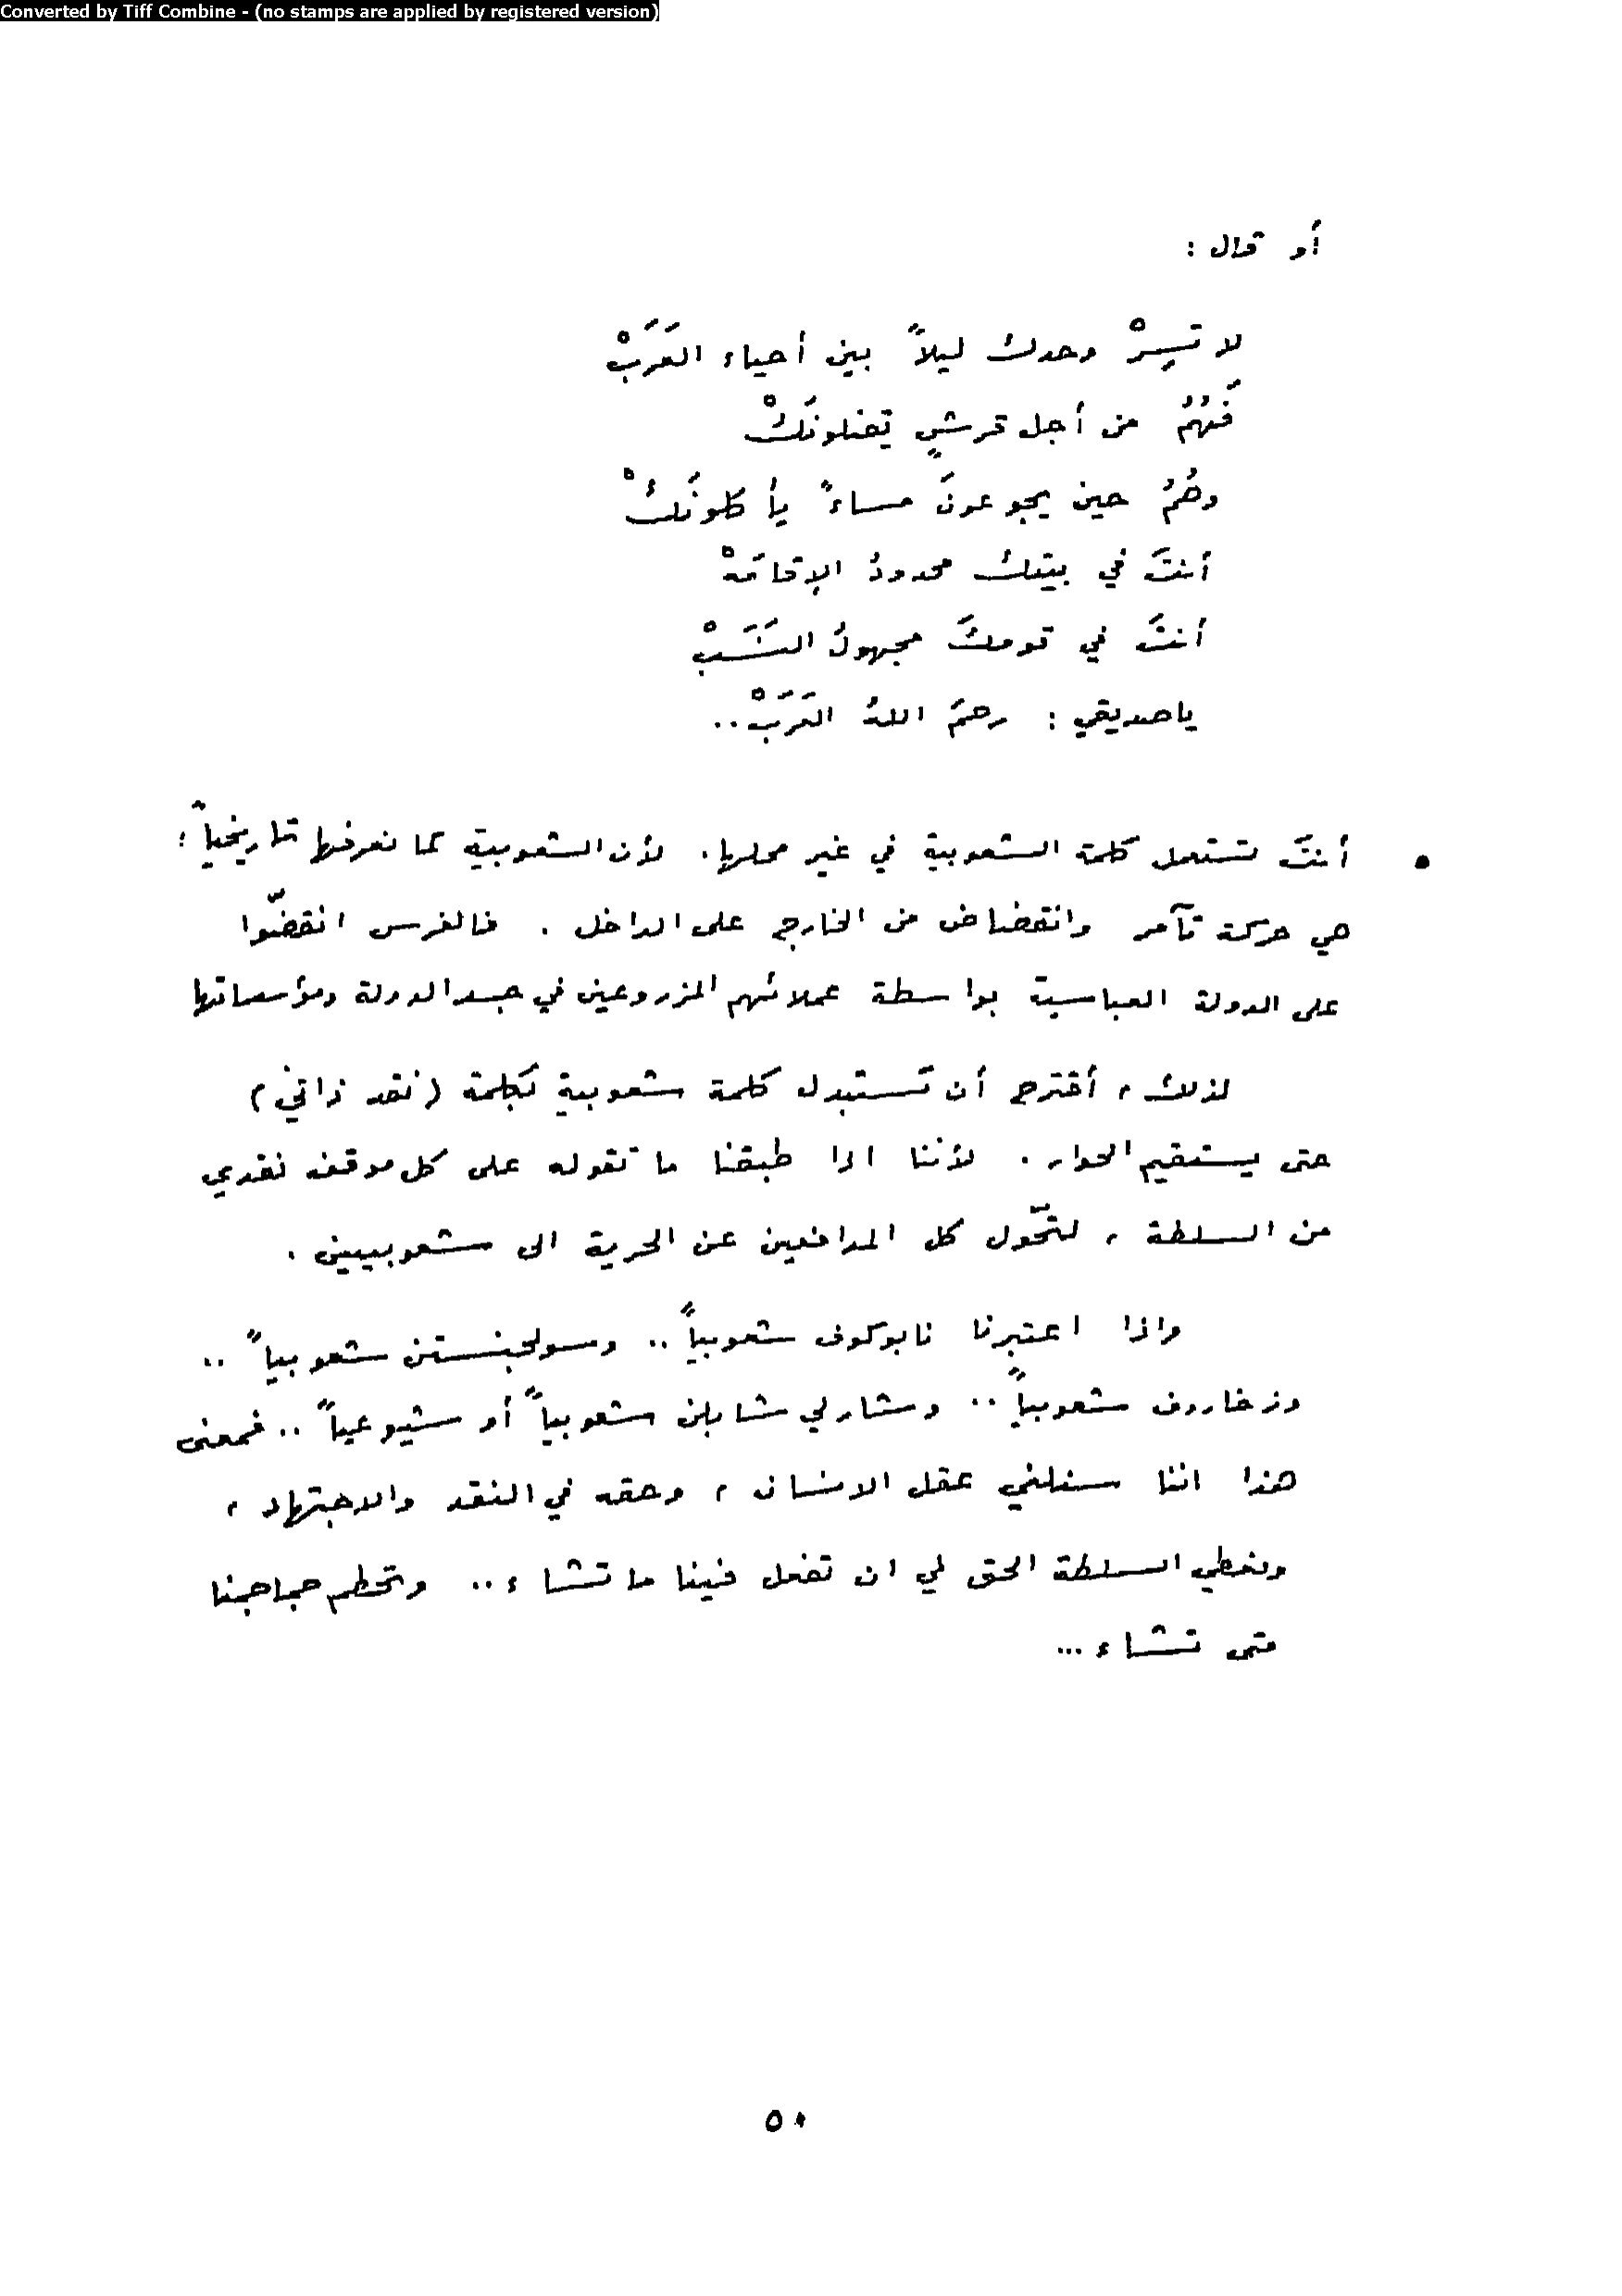 Converted by Tiff Combine - (no stamps are applied by registered version)
أو قال :
لا تَسِرْ وحدك ليلاً بين أحياء العَرَبْ
فَهُمُ من أجل قرشٍ يقتلونَكْ
وهُمُ حين يجوعونَ مساءً يأكلونَكْ
أنتَ في بيتك محدودُ الإقامَهْ
أنتَ في قومكَ مجهولُ النَسَبْ
ياصديقي : رحمَ اللهُ العَرَبْ ..
• أنتَ تستعمل كلمة الشعوبية في غير محلها . لأن الشعوبية كما نعرفها تاريخياً ؛
هي حركة تآمر وانقضاض من الخارج على الداخل . فالفرس انقضّوا
على الدولة العباسية بواسطة عملائهم المزروعين في جسد الدولة ومؤسساتها
لذلك ، أقترح أن تستبدل كلمة شعوبية بكلمة ( نقد ذاتي )
حتى يستقيم الحوار . لأننا اذا طبقنا ما تقوله على كل موقف نقدي
من السلطة ، لتحّول كل المدافعين عن الحرية الى شعوبيين .
واذا اعتبرنا نابوكوف شعوبياً .. وسولجنستن شعوبياً ..
وزخاروف شعوبياً .. وشارلي شابلن شعوبياً أو شيوعياً .. فمعنى
هذا اننا سنلغي عقل الانسان ، وحقه في النقد والاجتهاد ،
ونعطي السلطة الحق لي ان تفعل فينا ما تشاء .. وتحطم جماجمنا
متى تشاء ...
٥٠